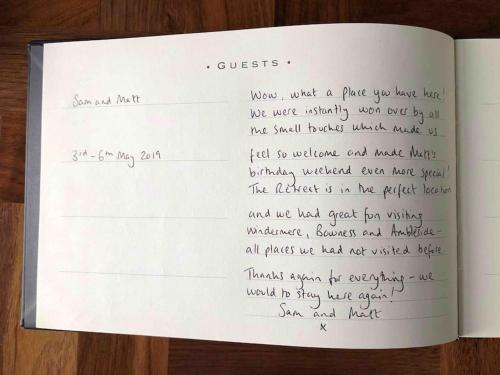 • GUESTS •
Sam and Matt
3rd - 6th May 2019
Wow, what a place you have here!
We were instantly won over by all
the small touches which made us
feel so welcome and made Matt's
birthday weekend even more special!
The Retreat is in the perfect location
and we had great fun visiting
Windermere, Bowness and Ambleside -
all places we had not visited before.
Thanks again for everything - we
would to stay here again!
Sam and Matt
x